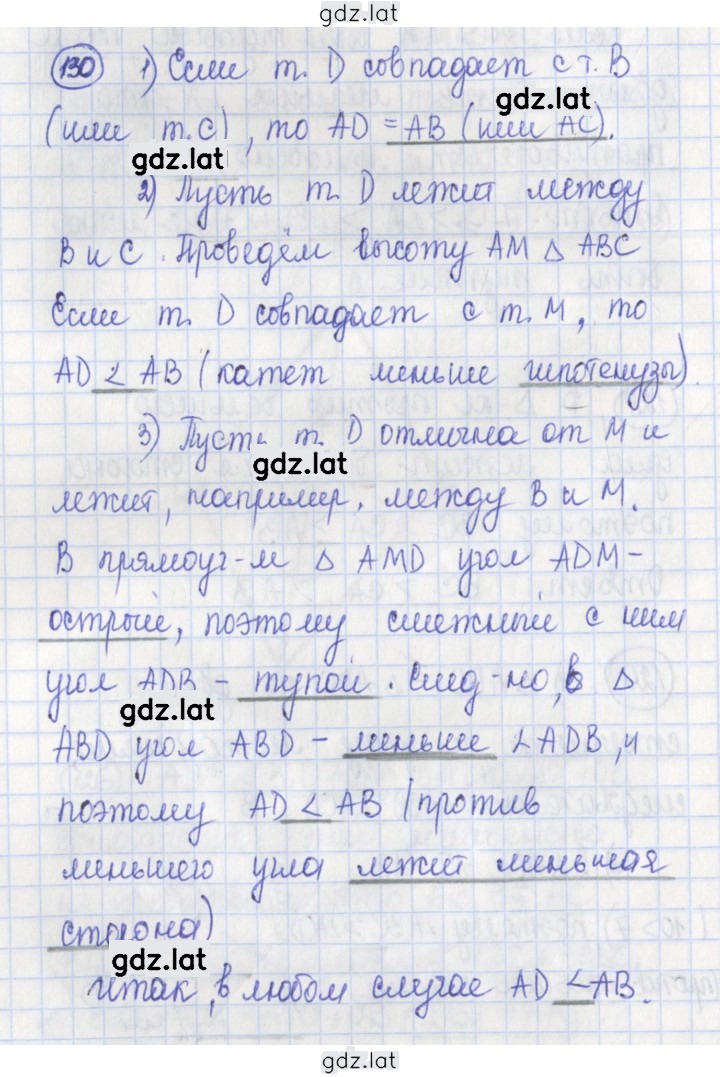 gdz.lat
130 1) Если т. D совпадает с т. B
gdz.lat
(или т. C), то AD = AB (или AC).
gdz.lat
2) Пусть т. D лежит между
B и C. Проведём высоту AM △ ABC
Если т. D совпадает с т. M, то
AD < AB (катет меньше гипотенузы).
3) Пусть т. D отлична от M и
gdz.lat
лежит, например, между B и M.
В прямоуг-м △ AMD угол ADM -
острый, поэтому смежный с ним
угол ADB - тупой. След-но, в △
gdz.lat
ABD угол ABD - меньше ∠ADB, и
поэтому AD < AB (против
меньшего угла лежит меньшая
сторона)
gdz.lat
Итак, в любом случае AD < AB.
gdz.lat